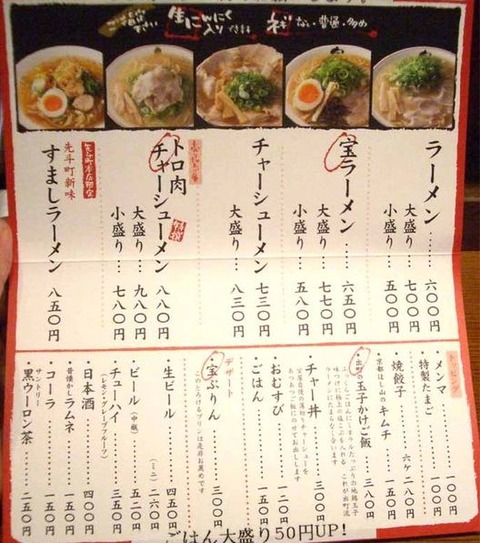 生にんにく
入り
ネギ ない・普通・多め
ラーメン……六〇〇円
大盛り…七〇〇円
小盛り…五〇〇円
宝ラーメン……六五〇円
大盛り…七七〇円
小盛り…五八〇円
チャーシューメン 七三〇円
大盛り…八三〇円
トロ肉
チャーシューメン 八八〇円
大盛り…九八〇円
小盛り…七八〇円
先斗町新味
すましラーメン 八五〇円
トッピング
メンマ……一〇〇円
特製たまご……一〇〇円
焼餃子……六ケ 二八〇円
京都ほし山の キムチ……三八〇円
出町の 玉子かけご飯
チャー丼……三〇〇円
おむすび……一二〇円
ごはん……一五〇円
デザート
宝ぷりん…三〇〇円
このとろけるプリンは是非お薦めです
生ビール……四五〇円
(ミニ) 二六〇円
ビール(中瓶)……五二〇円
チューハイ……三五〇円
(レモン・グレープフルーツ)
日本酒……四〇〇円
昔懐かしラムネ……一五〇円
コーラ……一五〇円
サントリー
黒ウーロン茶……二五〇円
ごはん大盛り50円UP!